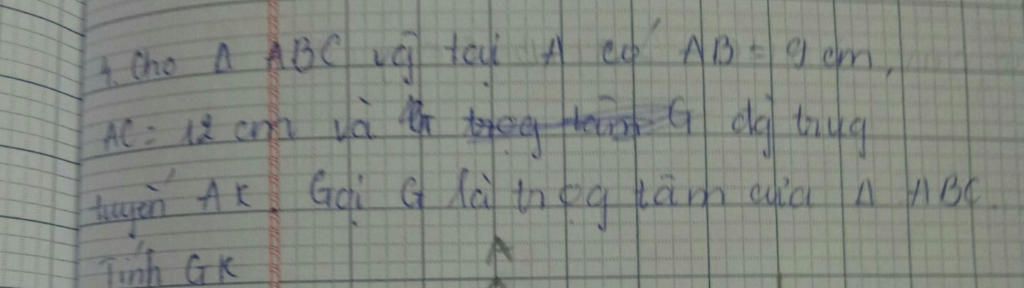 4. Cho Δ ABC vg̃ tại A có AB = 9 cm,
AC = 12 cm và G đg trug
tuyến AK. Gọi G là trọg tâm của Δ ABC.
Tính GK
A